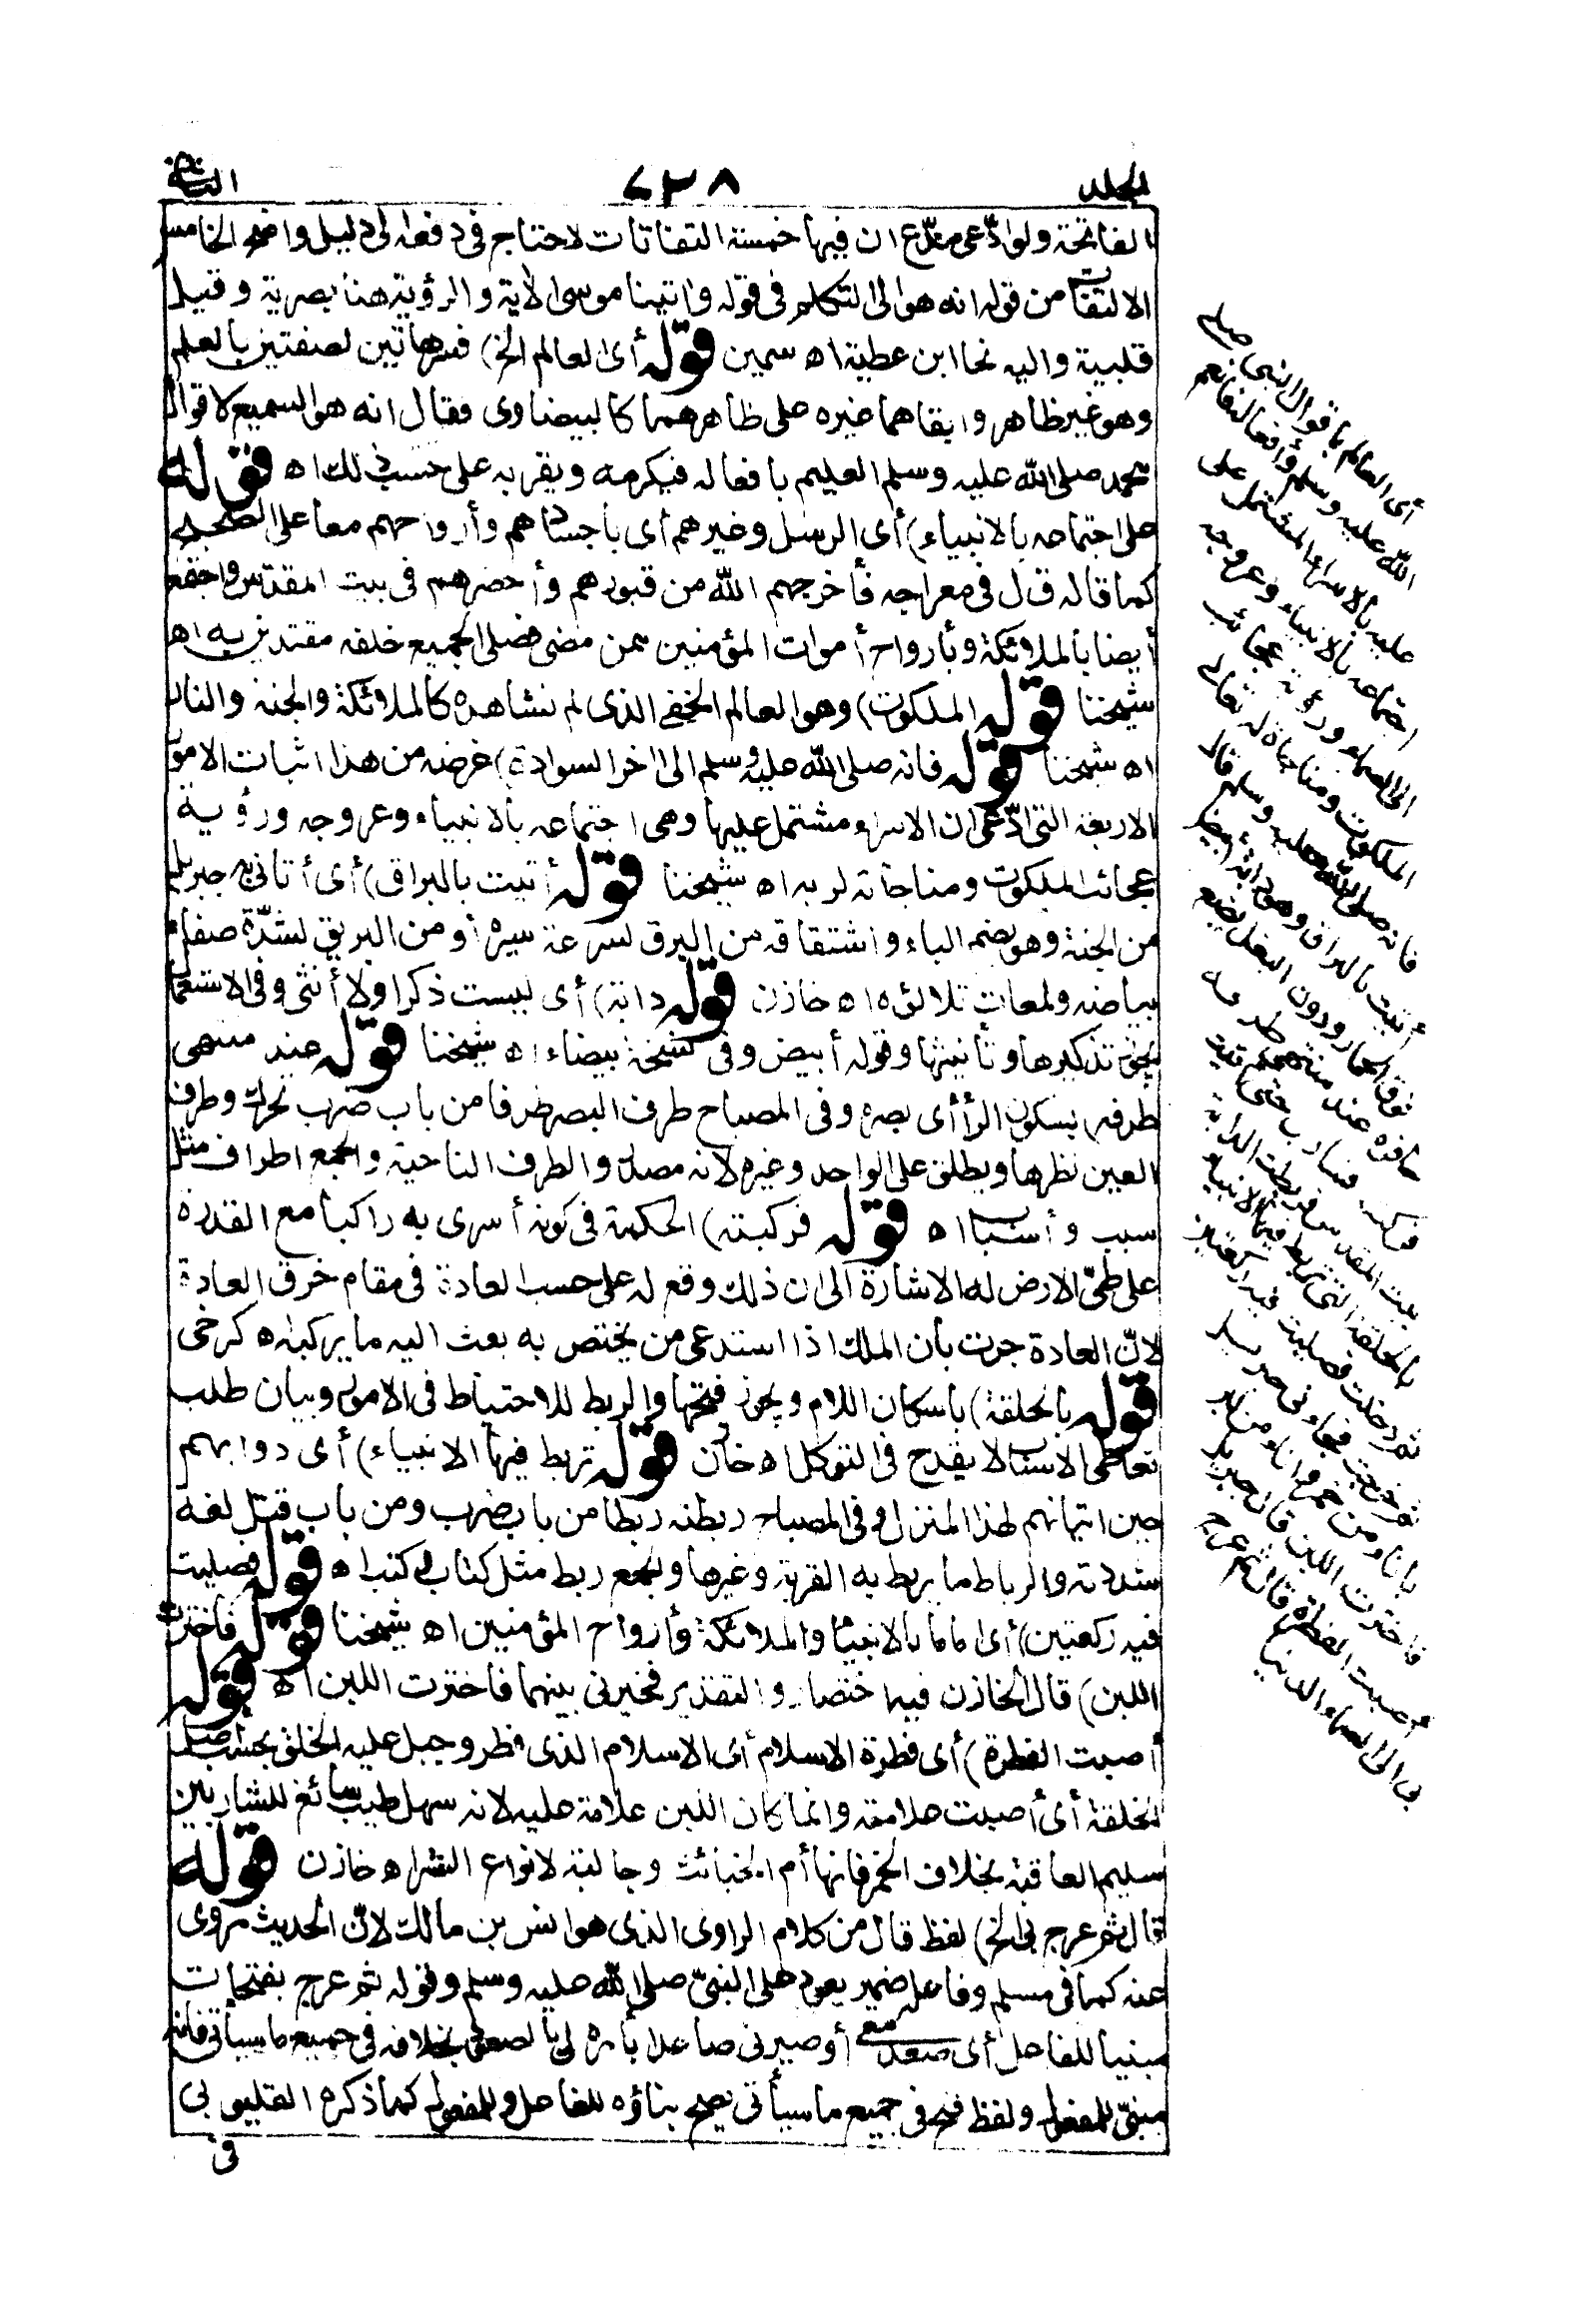 المجلد
٧٣٨
الثانى
الفاتحة ولوادّعى مدّع ان فيها خمسة التفاتات لاحتاج فى دفعه الى دليل واضح الخامس
الالتفات من قوله انه هو الى التكلم فى قوله واتينا موسى الاية والرؤية هنا بصرية وقيل
قلبية واليه نحا ابن عطية اه سمين قوله أى العالم الخ) فسر هاتين لصفتين بالعلم
وهو غير ظاهر وابقاهما غيره على ظاهرهما كالبيضاوى فقال انه هو السميع لاقوال
محمد صلى الله عليه وسلم العليم بافعاله فيكرمه ويقربه على حسب ذلك اه قوله
على اجتماعه بالانبياء) أى الرسل وغيرهم أى باجسادهم وأرواحهم معا على الصحيح
كما قاله ق ل فى معراجه فأخرجهم الله من قبورهم وأحضرهم فى بيت المقدس واجتمع
أيضا بالملائكة وبأرواح أموات المؤمنين ممن مضى فصلى الجميع خلفه مقتدين به اه
شيخنا قوله الملكوت) وهو العالم الخفى الذى لم نشاهده كالملائكة والجنة والنار
اه شيخنا قوله فانه صلى الله عليه وسلم الى اخر السوادة) غرضه من هذا اثبات الامور
الاربعة التى ادّعى ان الاسراء مشتمل عليها وهى اجتماعه بالانبياء وعروجه ورؤية
عجائب الملكوت ومناجاته لربه اه شيخنا قوله أتيت بالبراق) أى أتانى به جبريل
من الجنة وهو بضم الباء واشتقاقه من البرق لسرعة سيره أو من البريق لشدّة صفاء
بياضه ولمعات تلالئه اه خازن قوله دابة) أى ليست ذكرا ولا أنثى وفى الاستعمال
يجوز تذكيرها وتأنيثها وقوله أبيض وفى نسخة بيضاء اه شيخنا قوله عند منتهى
طرفه) بسكون الرا أى بصره وفى المصباح طرف البصر طرفا من باب ضرب تحرك وطرف
العين نظرها ويطلق على الواحد وغيره لانه مصدر والطرف الناحية والجمع اطراف مثل
سبب وأسباب اه قوله فركبته) الحكمة فى كونه أسرى به راكبا مع القدرة
على طىّ الارض له الاشارة الى ان ذلك وقع له على حسب العادة فى مقام خرق العادة
لانّ العادة جرت بأن الملك اذا استدعى من يختص به بعث اليه ما يركبه اه كرخى
قوله بالحلقة) باسكان اللام ويجوز فتحها والربط للاحتياط فى الامور وبيان طلب
تعاطى الاسباب لا يقدح فى التوكل اه خازن قوله تربط فيها الانبياء) أى دوابهم
حين اتيانهم لهذا المنزل وفى المصباح ربطته ربطا من باب ضرب ومن باب قتل لغة
شددته والرباط ما يربط به القربة وغيرها والجمع ربط مثل كتاب وكتب اه قوله فصليت
فيه ركعتين) أى اماما بالانبيا والملائكة وأرواح المؤمنين اه شيخنا قوله فاخترت
اللبن) قال الخازن فيه اختصار والتقدير فخيرنى بينهما فاخترت اللبن اه قوله
أصبت الفطرة) أى فطرة الاسلام أى الاسلام الذى فطر وجبل عليه الخلق بحسب أصل
الخلقة أى أصبت علامته وانما كان اللبن علامة عليه لانه سهل طيب سائغ للشاربين
سليم العاقبة بخلاف الخمر فانها أم الخبائث وجالبة لانواع الشر اه خازن قوله
قال ثم عرج بى الخ) لفظ قال من كلام الراوى الذى هو انس بن مالك لانّ الحديث مروى
عنه كما فى مسلم وفاعله ضمير يعود على النبىّ صلى الله عليه وسلم وقوله ثم عرج بفتحات
مبنيا للفاعل أى صعد معى أو صيرنى صاعدا بأمره لى بالصعود بخلافه فى جميع ما سيأتى فانه
مبنىّ للمفعول ولفظ فتح فى جميع ما سيأتى يصح بناؤه للفاعل وللمفعول كما ذكره القليوبى
فى
أى العالم باقوال النبى صلى
الله عليه وسلم وأفعاله فأنعم
عليه بالاسراء المشتمل على
اجتماعه بالانبياء وعروجه
الى السماء ورؤية عجائب
الملكوت ومناجاة له تعالى
فانه صلى الله عليه وسلم قال
أتيت بالبراق وهو دابة أبيض
فوق الحمار ودون البغل يضع
حافره عند منتهى طرفه
فركبته فسار بى حتى أتيت
بيت المقدس فربطت الدابة
بالحلقة التى تربط فيها الانبياء
ثم دخلت فصليت فيه ركعتين
ثم خرجت فجاءنى جبريل
باناء من خمر واناء من لبن
فاخترت اللبن قال جبريل
أصبت الفطرة قال ثم عرج
بى الى السماء الدنيا